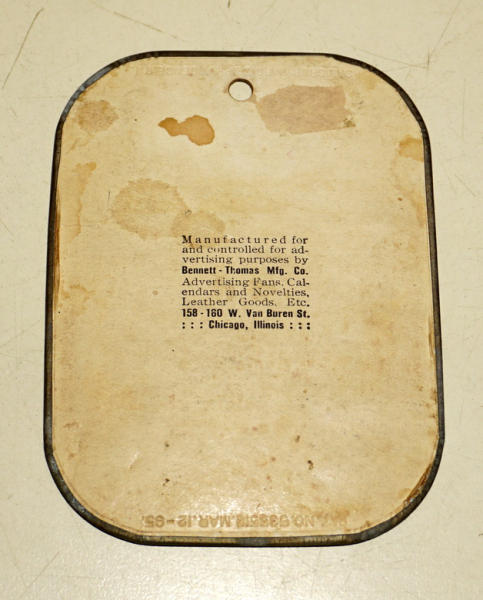 Manufactured for
and controlled for ad-
vertising purposes by
Bennett - Thomas Mfg. Co.
Advertising Fans, Cal-
endars and Novelties,
Leather Goods, Etc.
158 - 160 W. Van Buren St.
: : : Chicago, Illinois : : :
MAR. 12-